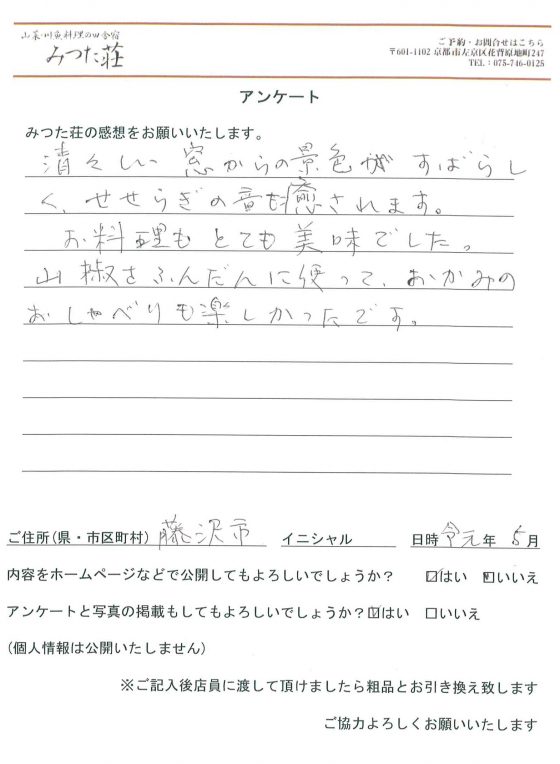 山菜・川魚料理の田舎宿
みつた荘
ご予約・お問合せはこちら
〒601-1102 京都市左京区花背原地町247
TEL：075-746-0125
アンケート
みつた荘の感想をお願いいたします。
清々しい窓からの景色がすばらし
く、せせらぎの音も癒されます。
お料理もとても美味でした。
山椒をふんだんに使って、おかみの
おしゃべりも楽しかったです。
ご住所（県・市区町村） 藤沢市 イニシャル 日時 令元 年 5 月
内容をホームページなどで公開してもよろしいでしょうか？ ☑はい ☑いいえ
アンケートと写真の掲載もしてもよろしいでしょうか？☑はい □いいえ
（個人情報は公開いたしません）
※ご記入後店員に渡して頂けましたら粗品とお引き換え致します
ご協力よろしくお願いいたします